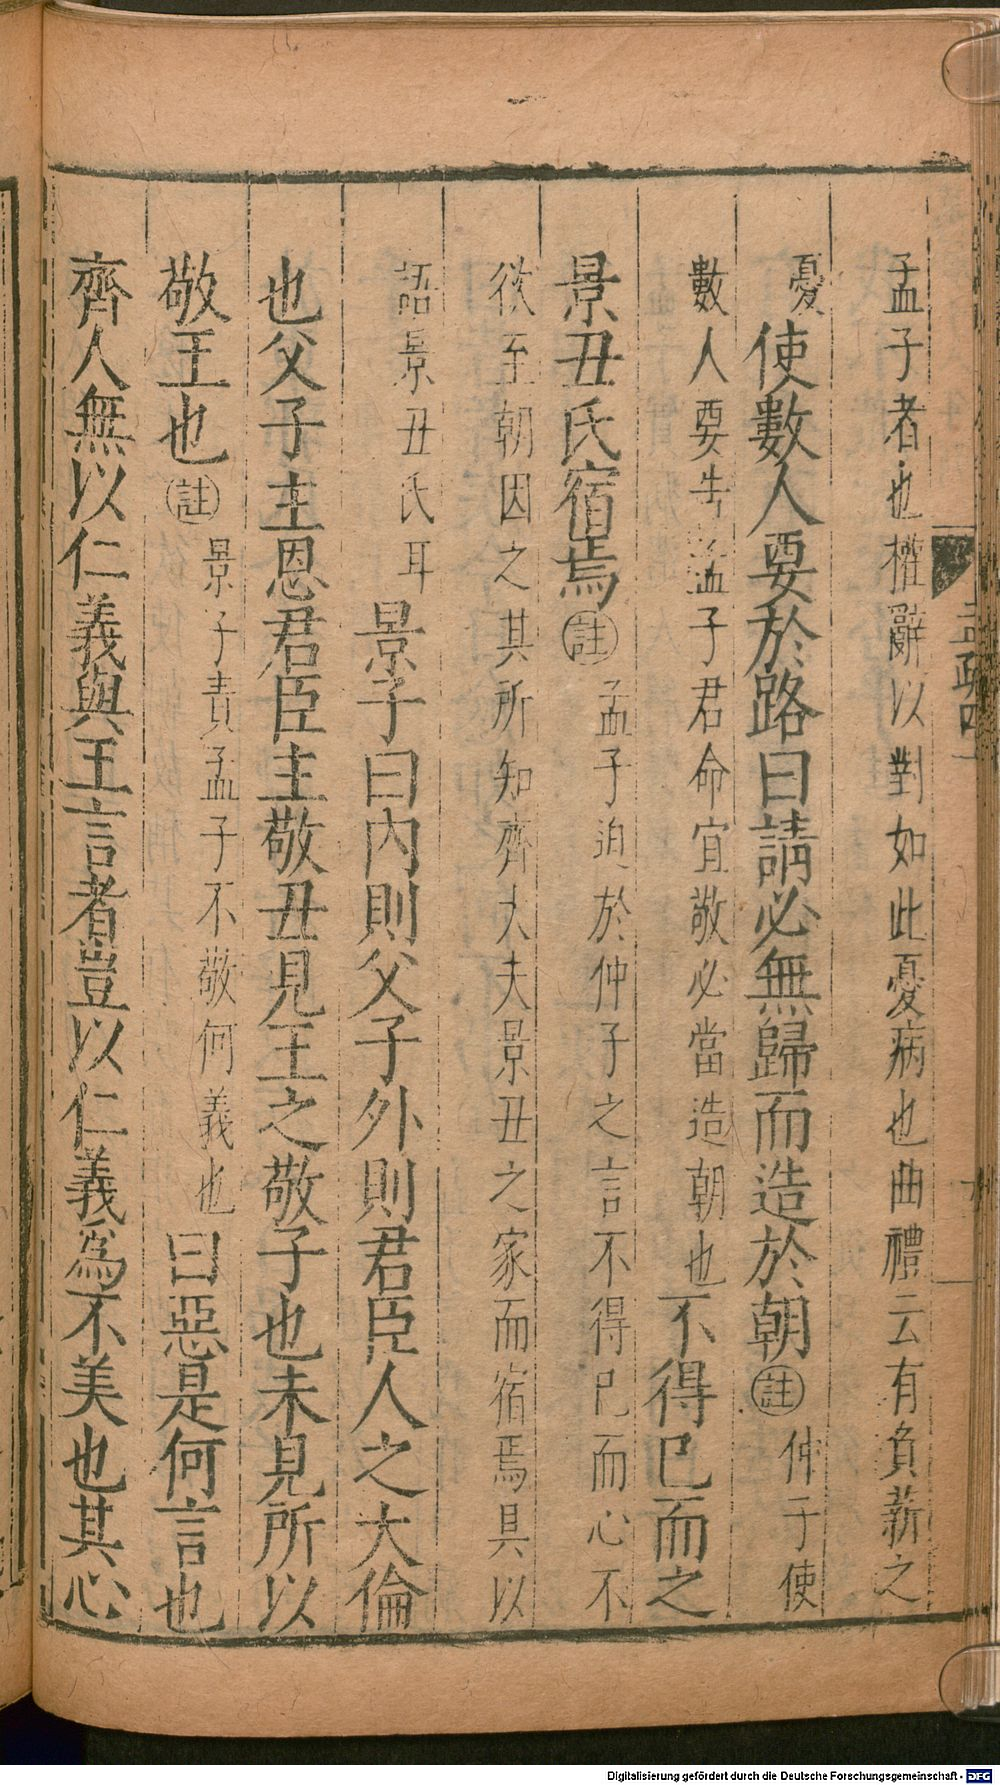 孟子者也權辭以對如此憂病也曲禮云有負薪之
憂使數人要於路曰請必無歸而造於朝註仲子使
數人要告孟子君命宜敬必當造朝也不得已而之
景丑氏宿焉註孟子迫於仲子之言不得已而心不
欲至朝因之其所知齊大夫景丑之家而宿焉具以
語景丑氏耳景子曰內則父子外則君臣人之大倫
也父子主恩君臣主敬丑見王之敬子也未見所以
敬王也註景子責孟子不敬何義也曰惡是何言也
齊人無以仁義與王言者豈以仁義爲不美也其心
Digitalisierung gefördert durch die Deutsche Forschungsgemeinschaft - DFG